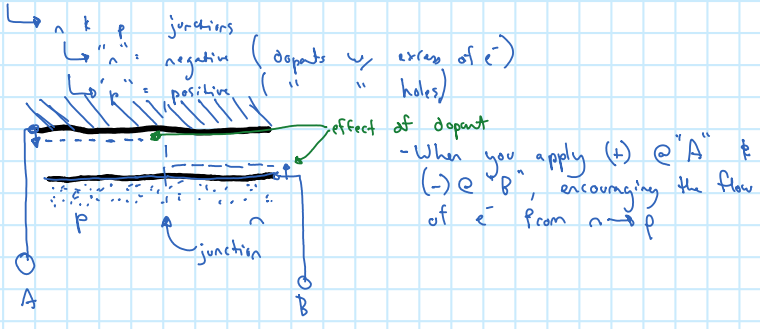 n & p junctions
"n" = negative (dopants w/ excess of e⁻)
"p" = positive ( " " holes)
effect of dopant
- When you apply (+) @ "A" &
(-) @ "B", encouraging the flow
of e⁻ from n → p
p
n
junction
A
B